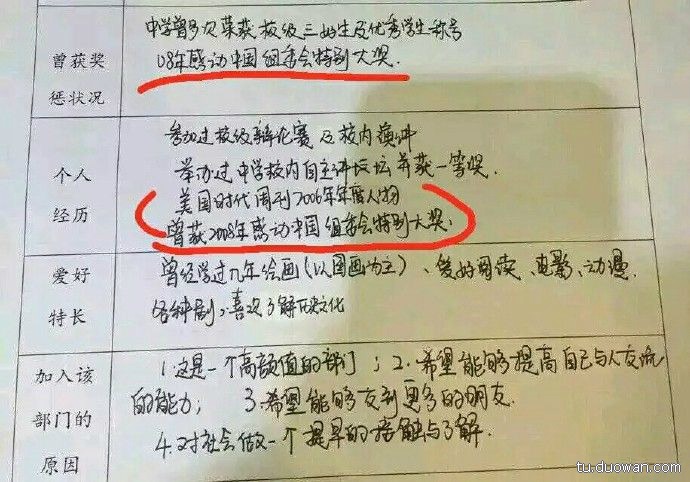 中学曾多次荣获校级三好生及优秀学生称号
曾获奖
惩状况
08年感动中国组委会特别大奖.
参加过校级辩论赛及校内演讲
个人
经历
举办过中学校内自主讲坛并获一等奖.
美国时代周刊2006年年度人物
曾获2008年感动中国组委会特别大奖.
爱好
特长
曾经学过九年绘画(以国画为主)、爱好阅读、电影、动漫、
各种剧,喜欢了解历史文化
加入该
部门的
原因
1.这是一个高颜值的部门;2.希望能够提高自己与人交流
的能力; 3.希望能够交到更多的朋友.
4.对社会做一个提早的接触与了解.
tu.duowan.com